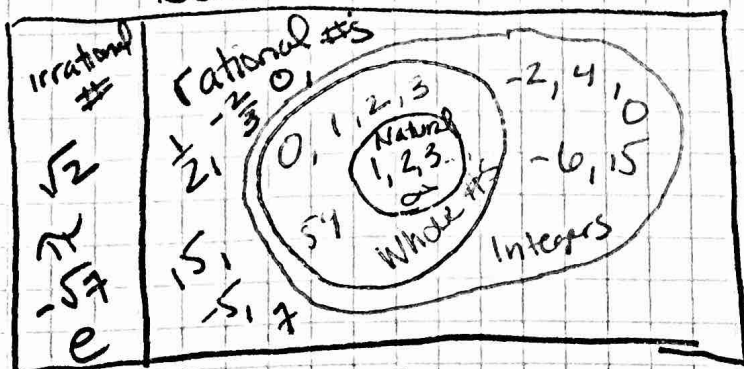 irrational
#
√2
π
-√7
e
rational #'s
1/2, -2/3 0,
.5,
-5, 7
0, 1, 2, 3
Natural
1, 2, 3..
∞
Whole #'s
-2, 4, 0
-6, 15
Integers